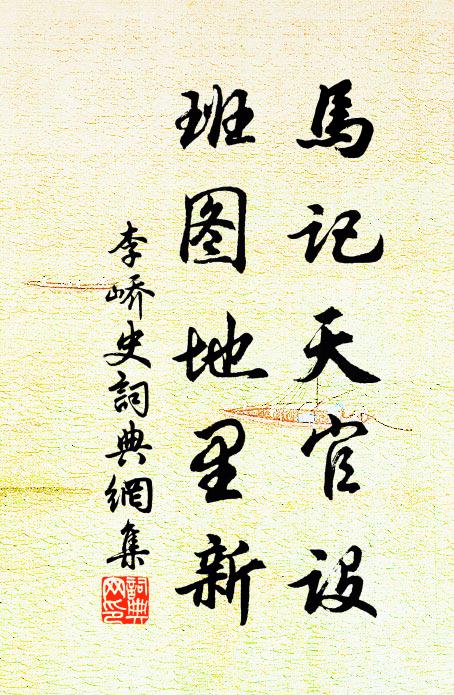 馬記天官設
班图地里新
李嶠史詞典網集
詞典